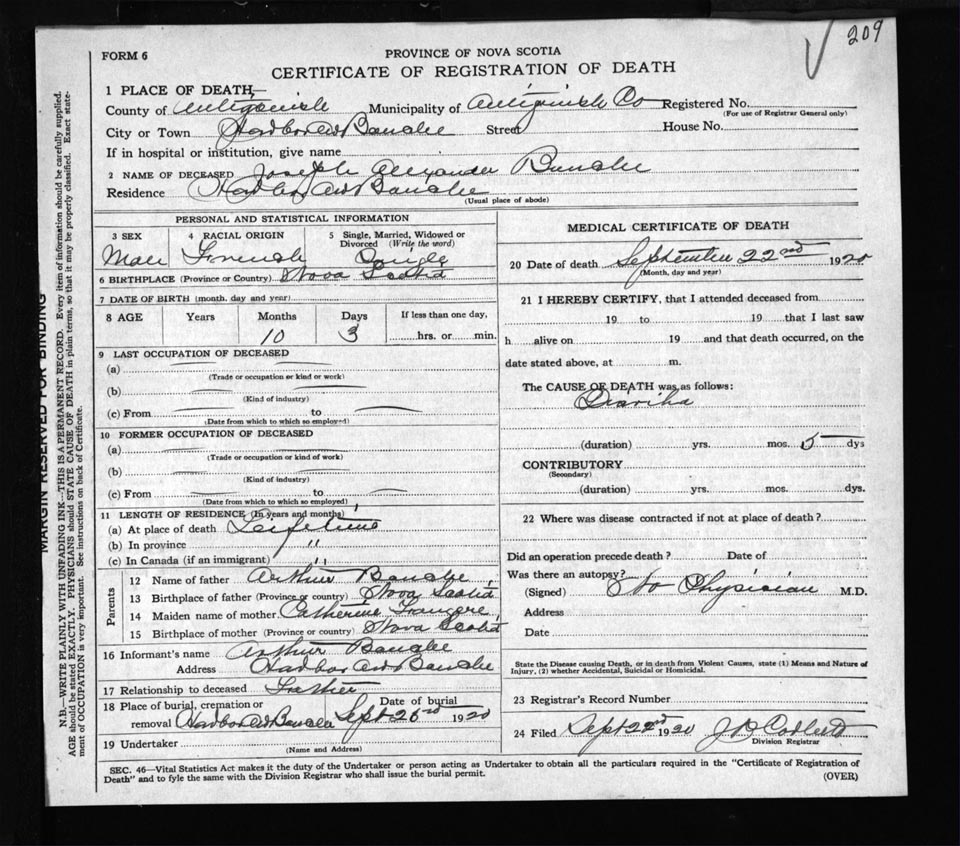 209
FORM 6
PROVINCE OF NOVA SCOTIA
CERTIFICATE OF REGISTRATION OF DEATH
1 PLACE OF DEATH—
County of Antigonish Municipality of Antigonish Co Registered No.
(For use of Registrar General only)
City or Town Street House No.
If in hospital or institution, give name
2 NAME OF DECEASED Joseph Alexander
Residence
(Usual place of abode)
PERSONAL AND STATISTICAL INFORMATION
3 SEX 4 RACIAL ORIGIN 5 Single, Married, Widowed or Divorced (Write the word)
Male French Single
6 BIRTHPLACE (Province or Country) Nova Scotia
7 DATE OF BIRTH (month, day and year)
8 AGE Years Months Days If less than one day,
10 3 hrs. or min.
9 LAST OCCUPATION OF DECEASED
(a)
(Trade or occupation or kind or work)
(b)
(Kind of industry)
(c) From to
(Date from which to which so employed)
10 FORMER OCCUPATION OF DECEASED
(a)
(Trade or occupation or kind of work)
(b)
(Kind of industry)
(c) From to
(Date from which to which so employed)
11 LENGTH OF RESIDENCE (In years and months)
(a) At place of death Lifetime
(b) In province "
(c) In Canada (if an immigrant) "
Parents
12 Name of father Arthur
13 Birthplace of father (Province or country) Nova Scotia
14 Maiden name of mother Catherine
15 Birthplace of mother (Province or country) Nova Scotia
16 Informant's name Arthur
Address
17 Relationship to deceased Father
18 Place of burial, cremation or Date of burial
removal Sept 1920
19 Undertaker
(Name and Address)
MEDICAL CERTIFICATE OF DEATH
20 Date of death September 22nd 1920
(Month, day and year)
21 I HEREBY CERTIFY, that I attended deceased from
19 to 19 that I last saw
h alive on 19 and that death occurred, on the
date stated above, at m.
The CAUSE OF DEATH was as follows:
Diariha
(duration) yrs. mos. 5 dys
CONTRIBUTORY
(Secondary)
(duration) yrs. mos. dys.
22 Where was disease contracted if not at place of death?
Did an operation precede death? Date of
Was there an autopsy?
(Signed) No Physician M.D.
Address
Date
State the Disease causing Death, or in death from Violent Causes, state (1) Means and Nature of
Injury, (2) whether Accidental, Suicidal or Homicidal.
23 Registrar's Record Number
24 Filed Sept 1920
Division Registrar
SEC. 46—Vital Statistics Act makes it the duty of the Undertaker or person acting as Undertaker to obtain all the particulars required in the "Certificate of Registration of
Death" and to fyle the same with the Division Registrar who shall issue the burial permit.
(OVER)
MARGIN RESERVED FOR BINDING
N.B.—WRITE PLAINLY WITH UNFADING INK—THIS IS A PERMANENT RECORD. Every item of information should be carefully supplied.
AGE should be stated EXACTLY. PHYSICIANS should STATE CAUSE OF DEATH in plain terms, so that it may be properly classified. Exact state-
ment of OCCUPATION is very important. See instructions on back of Certificate.